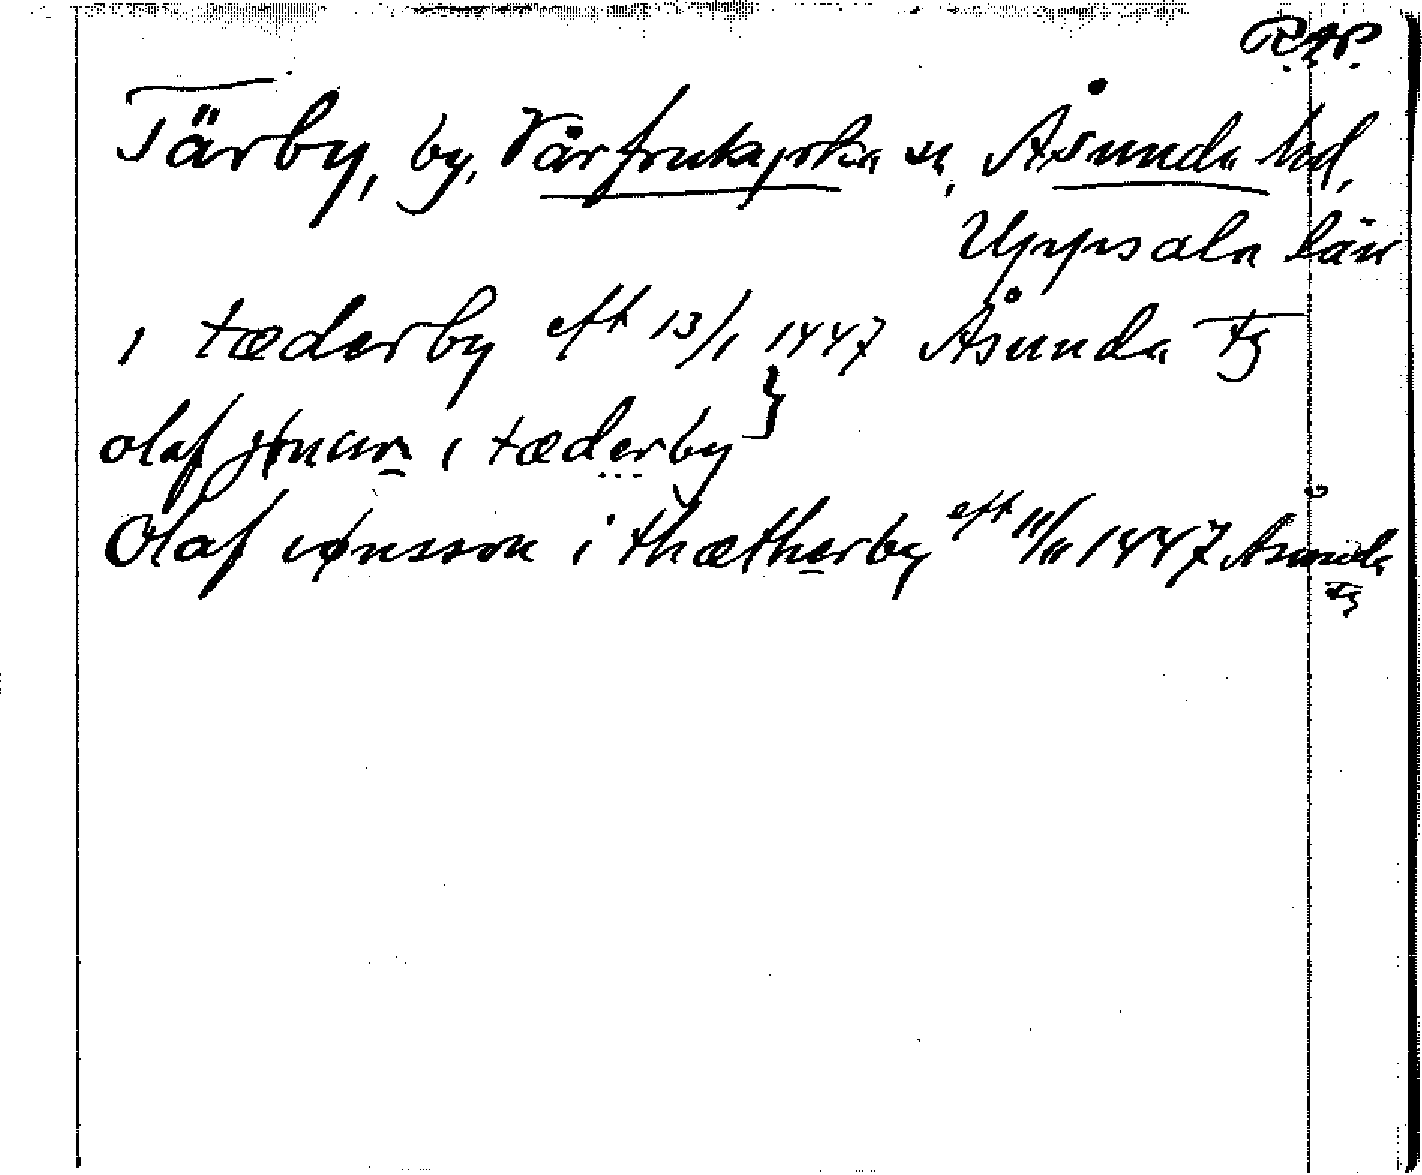 R.A.P.
Tärby, by, Vårfrukyrka sn, Åsunda hd,
Uppsala län
i tæderby eft 13/1 1447 Åsunda tg
olaf i tæderby }
Olaf iønsson i thætherby eft 11/11 1447 Åsunda
tg